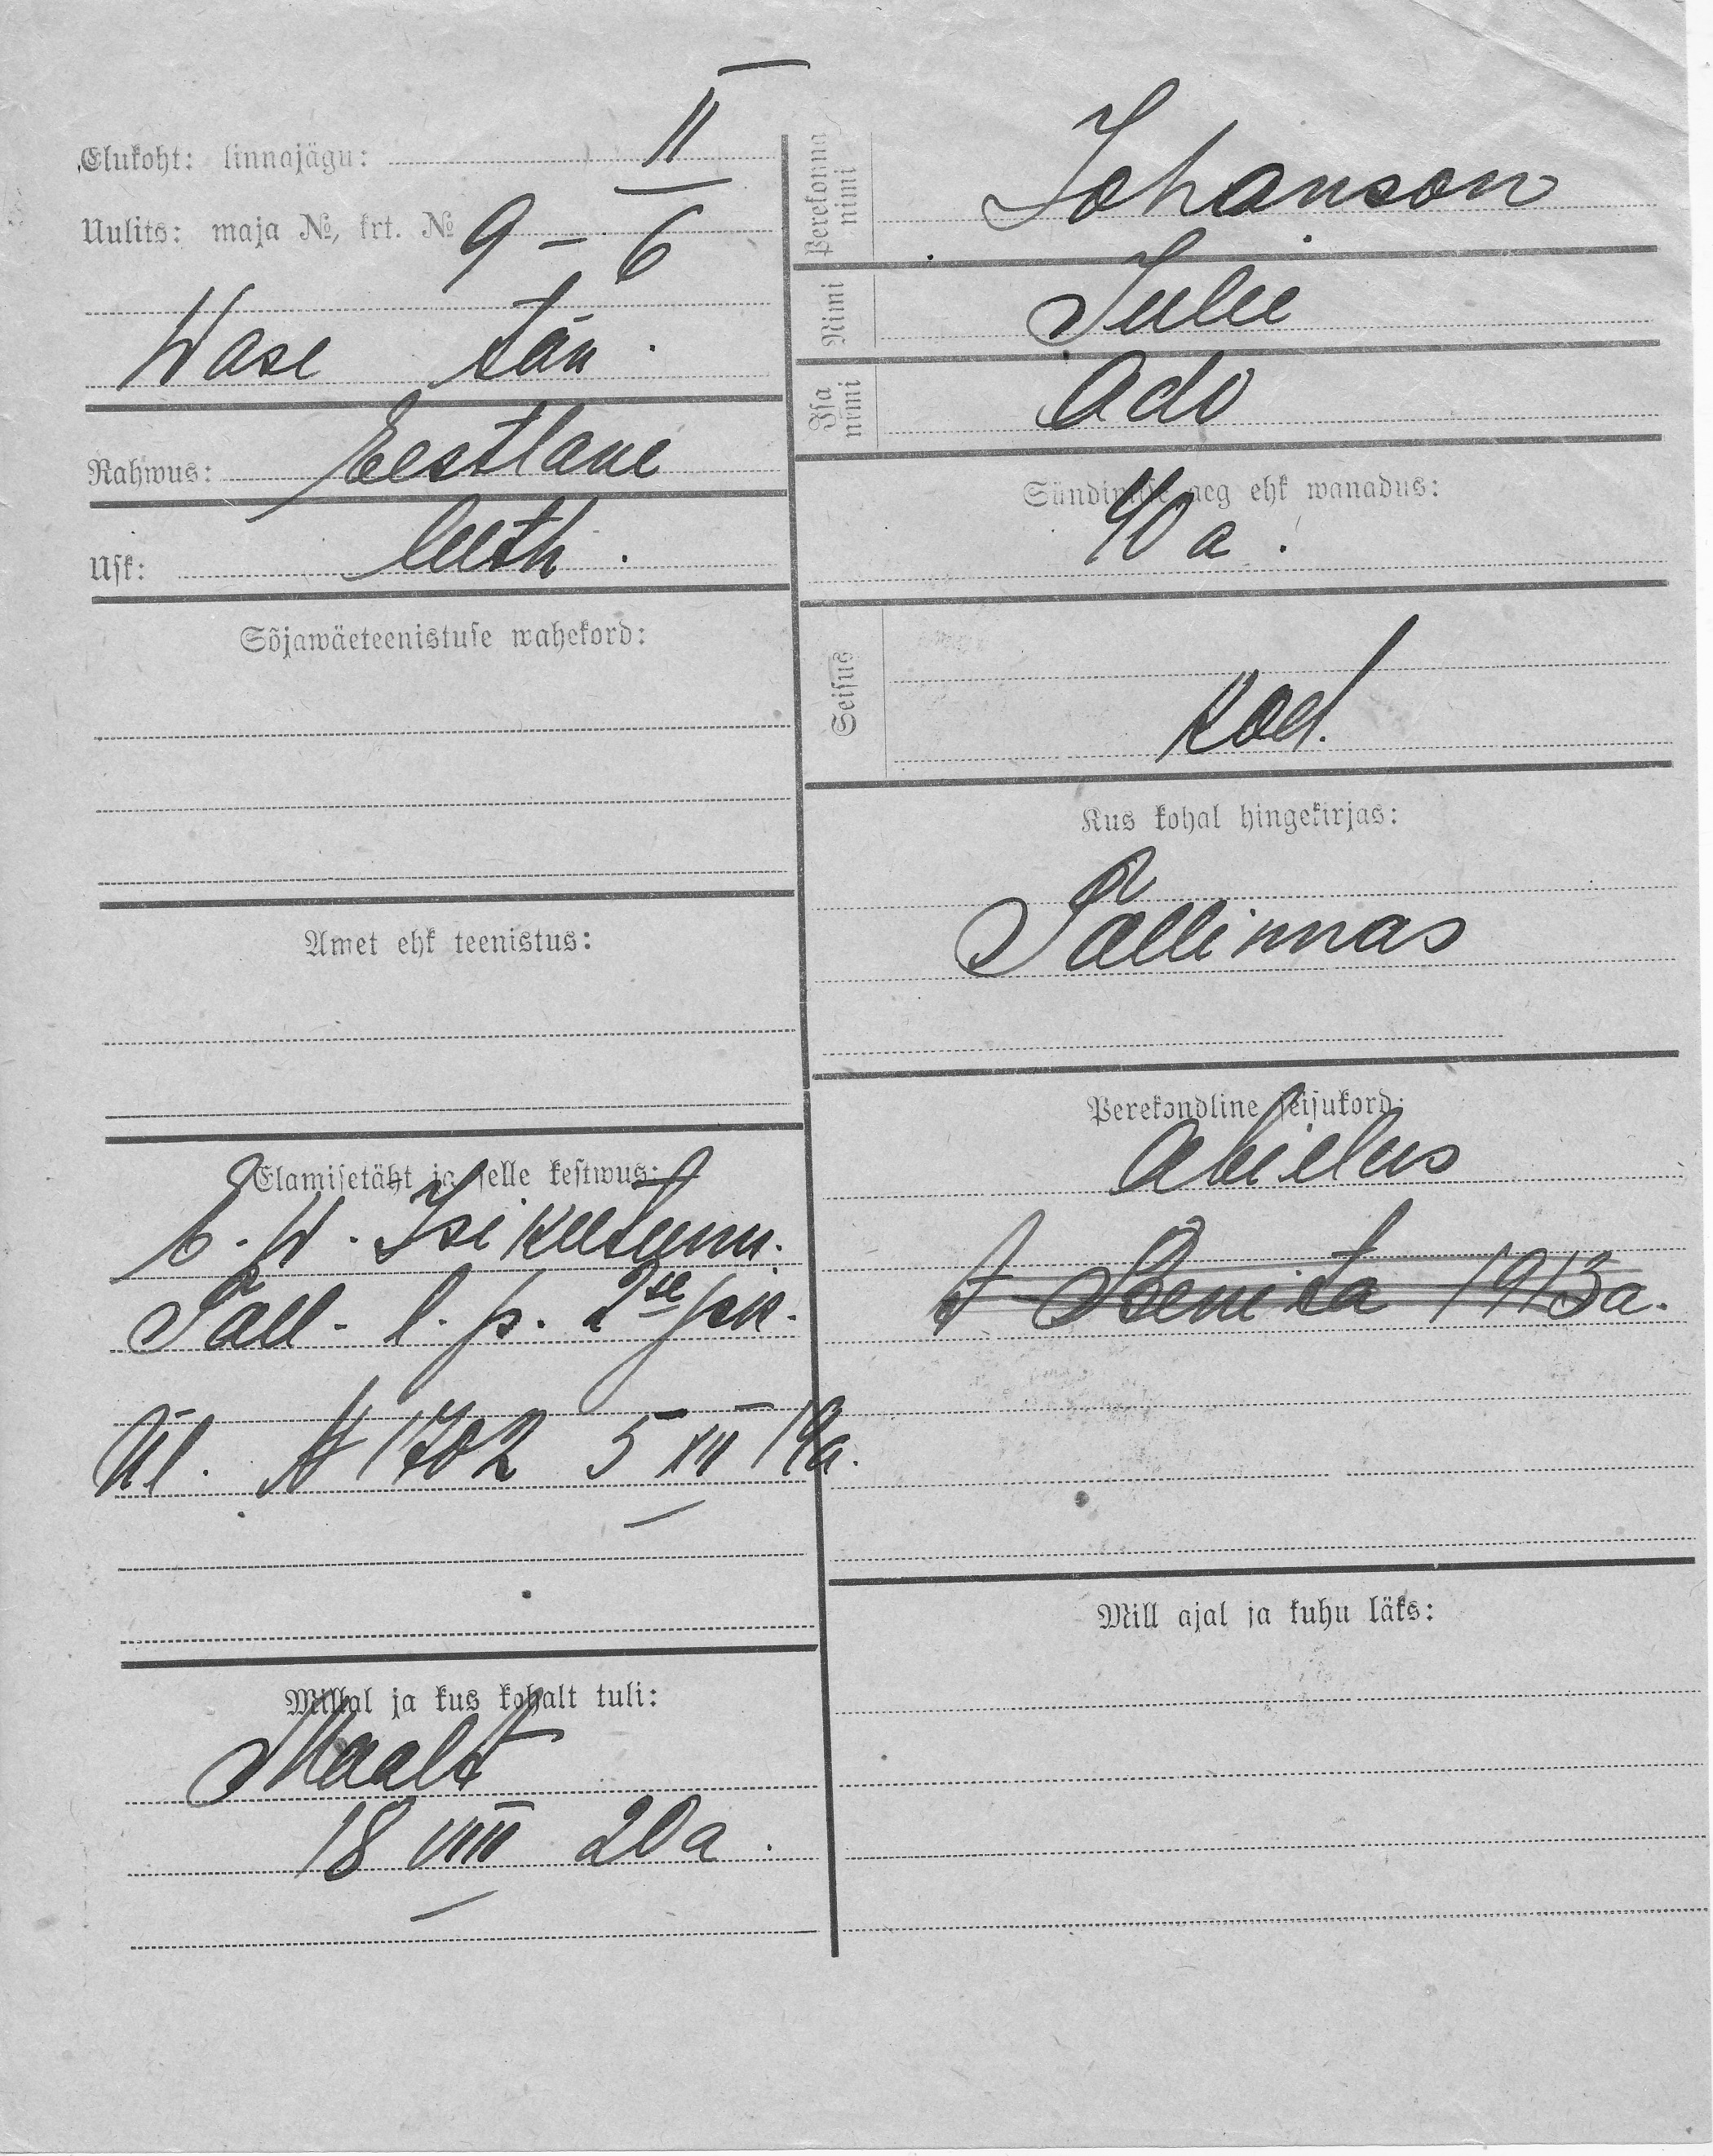 Elukoht: linnajägu: II
Uulits: maja №, krt. № 9 – 6
Wase tän.
Rahwus: Eestlane
Usk: luth.
Sõjawäeteenistuse wahekord:
Amet ehk teenistus:
Elamisetäht ja selle kestwus:
E. W. Isikutunn.
Tall. l. p. 2se jsk.
Ül. № 1702 5 XII 19a.
Millal ja kus kohalt tuli:
Maalt
18 VIII 20a.
Perekonna nimi
Johanson
Nimi
Julie
Isa nimi
Ado
Sündimise aeg ehk wanadus:
40 a.
Seisus
kod.
Kus kohal hingekirjas:
Tallinnas
Perekondline seisukord:
Abielus
Benita 1913a.
Mill ajal ja kuhu läks: